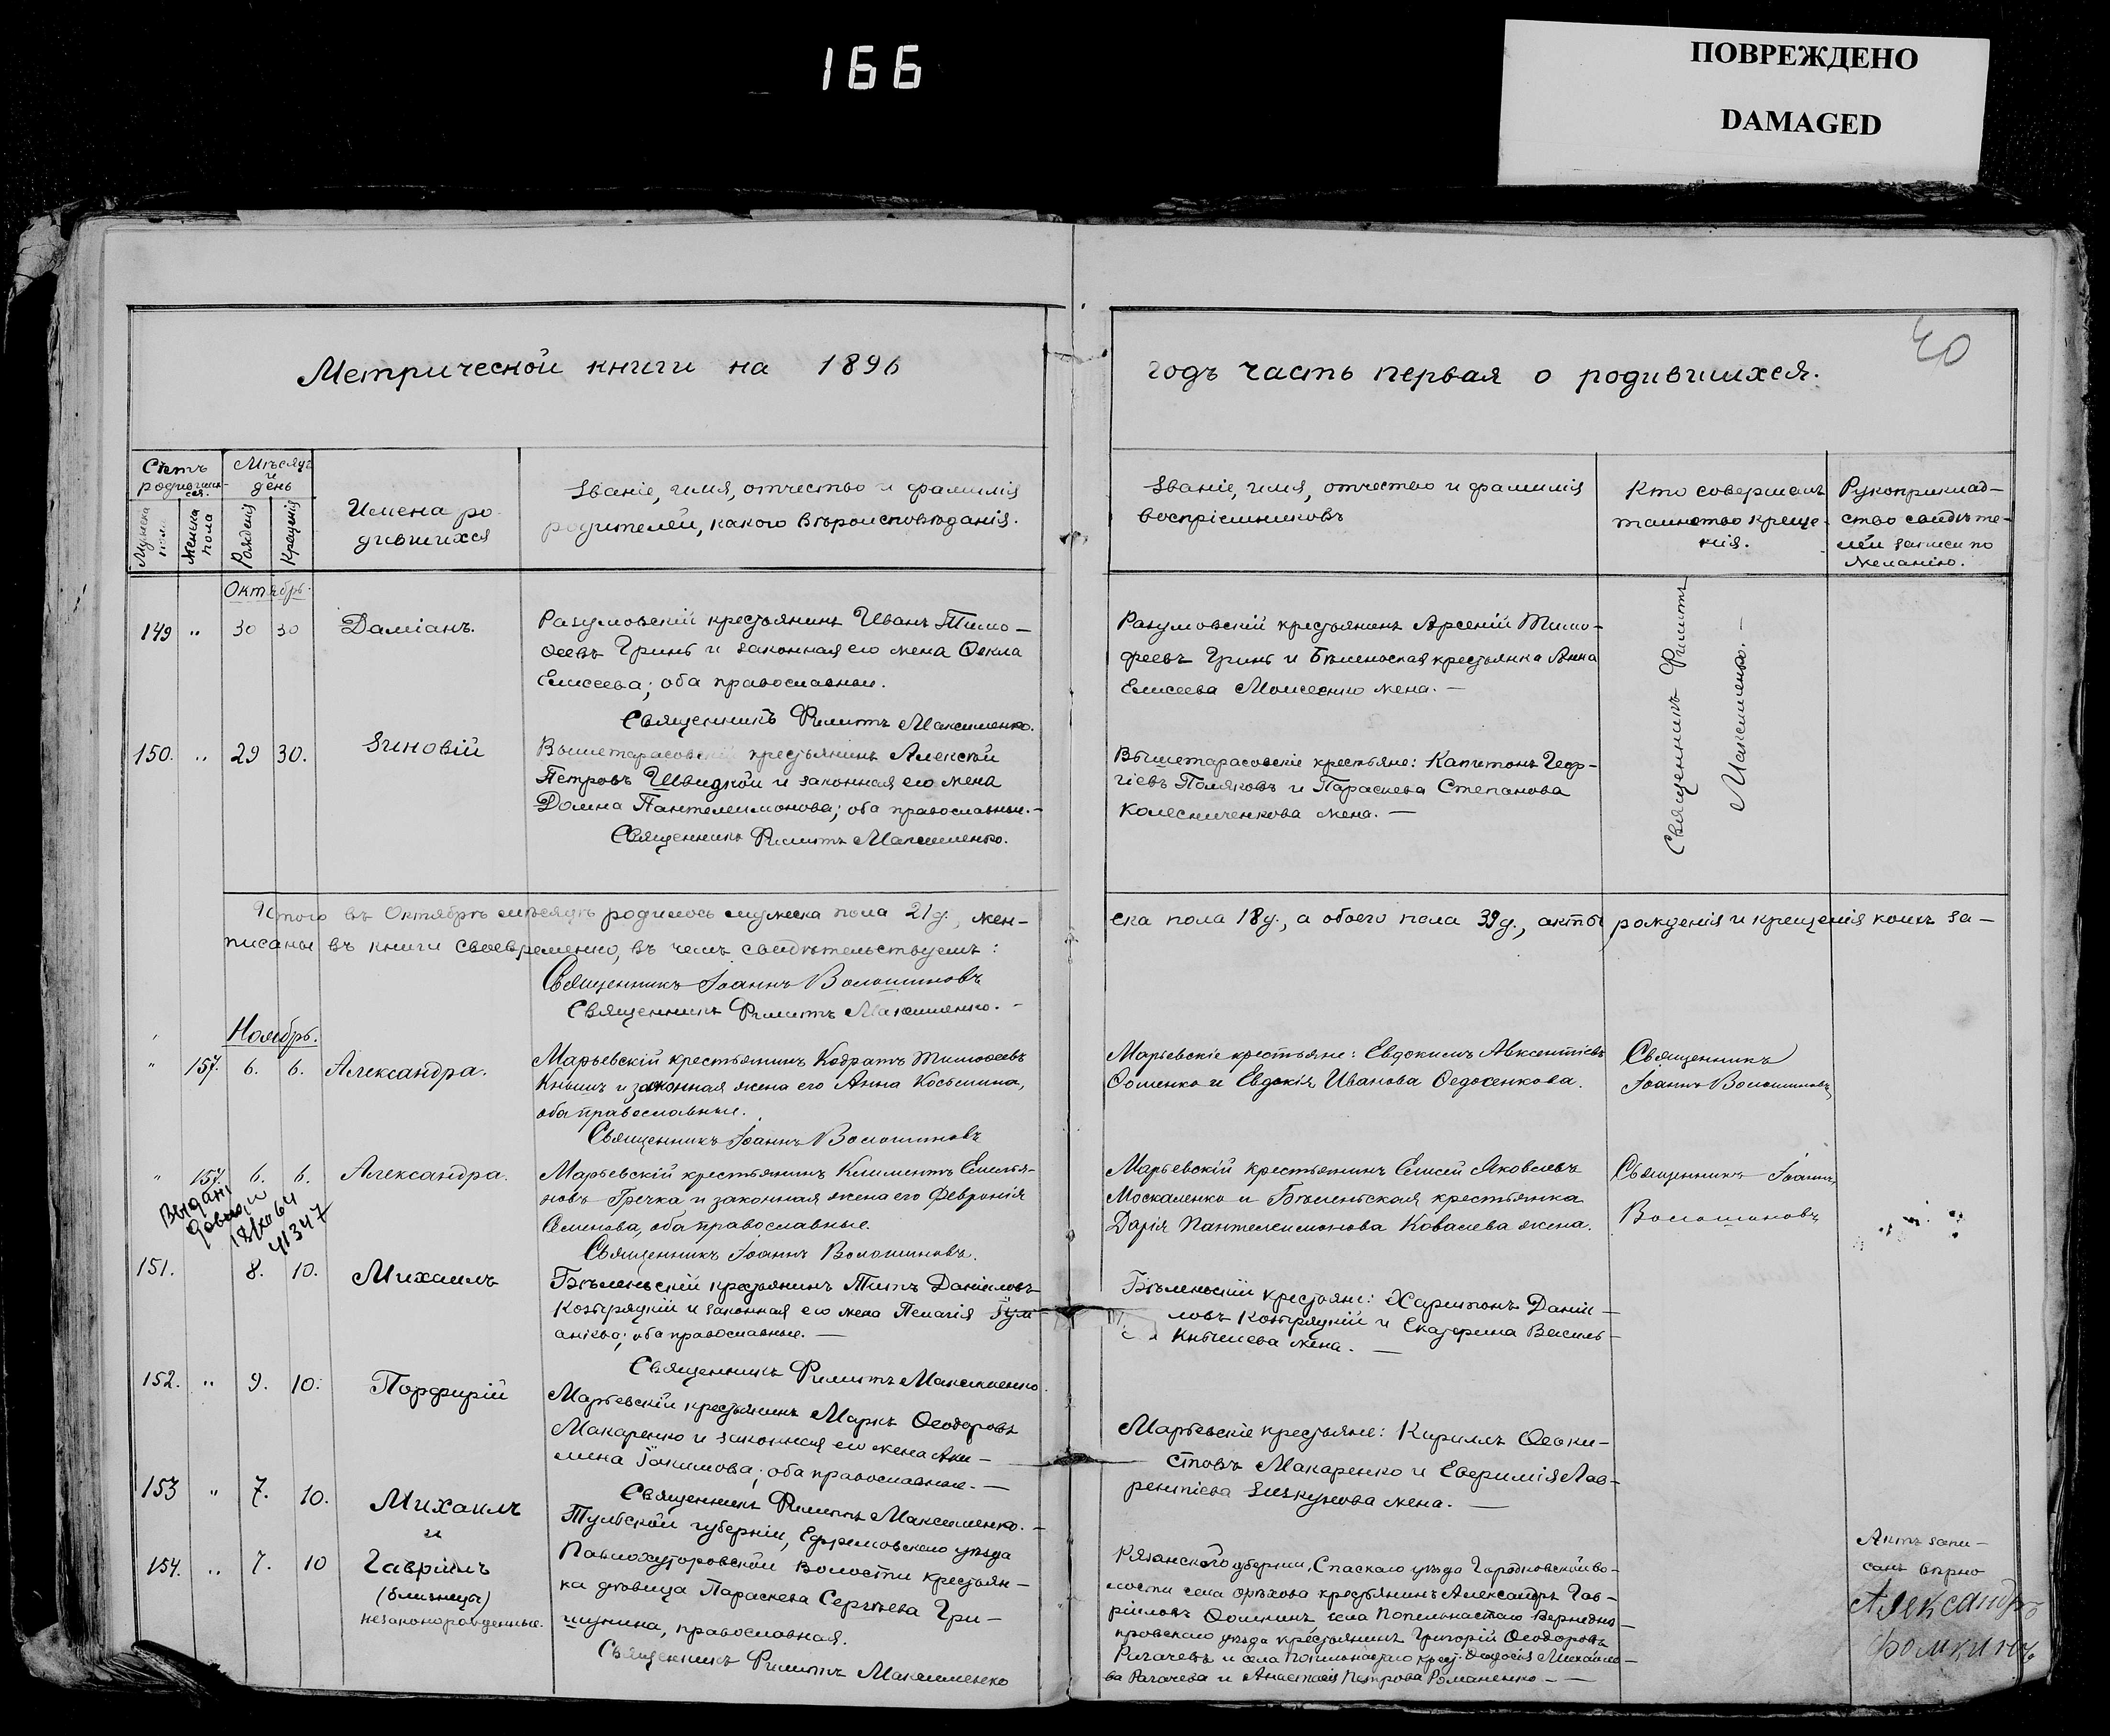 166
ПОВРЕЖДЕНО
DAMAGED
40
Метрической книги на 1896
годъ часть первая о родившихся.
Счетъ родившихся.
Мѣсяцъ и день
Мужеска пола
Женска пола
Рожденія
Крещенія
Имена родившихся
Званіе, имя, отчество и фамилія
родителей, какого вѣроисповѣданія.
Званіе, имя, отчество и фамилія
воспріемниковъ
Кто совершалъ
таинство креще-
нія.
Рукоприклад-
ство свидѣте-
лей записи по
желанію.
Октябрь.
149 " 30 30 Даміанъ.
Разумовскій крестьянинъ Иванъ Тимо-
ѳеевъ Гринь и законная его жена Ѳекла
Елисеева; оба православные.
Священникъ Филиппъ Максименко.
Разумовскій крестьянинъ Арсеній Тимо-
феевъ Гринь и Бѣленьская крестьянка Анна
Елисеева Моисеенко жена. —
Священникъ Филиппъ
Максименко. —
150. " 29 30. Зиновій
Вышетарасовскій крестьянинъ Алексѣй
Петровъ Швидкой и законная его жена
Домна Пантелеимонова; оба православные. —
Священникъ Филиппъ Максименко.
Вышетарасовскіе крестьяне: Капитонъ Геор-
гіевъ Поляковъ и Параскева Степанова
Колесниченкова жена. —
Итого въ Октябрѣ мѣсяцѣ родилось мужеска пола 21 д., жен-
ска пола 18 д., а обоего пола 39 д., акты рожденія и крещенія коихъ за-
писаны въ книги своевременно, въ чемъ свидѣтельствуемъ:
Священникъ Іоаннъ Волошиновъ
Священникъ Филиппъ Максименко. —
Ноябрь.
" 157. 6. 6. Александра.
Марьевскій крестьянинъ Кодратъ Тимоѳеевъ
Кнышъ и законная жена его Анна Косьмина,
оба православные.
Священникъ Іоаннъ Волошиновъ
Марьевскіе крестьяне: Евдокимъ Авксентіевъ
Ѳоменко и Евдокія Иванова Ѳедосенкова.
Священникъ
Іоаннъ Волошиновъ
" 157. 6. 6. Александра.
Марьевскій крестьянинъ Климентъ Емелья-
новъ Гречка и законная жена его Февронія
Семенова, оба православные.
Священникъ Іоаннъ Волошиновъ.
Марьевскій крестьянинъ Елисей Яковлевъ
Москаленко и Бѣленьская крестьянка
Дарія Пантелеимонова Ковалева жена.
Священникъ Іоаннъ
Волошиновъ
41347
151. 8. 10. Михаилъ
Бѣленьскій крестьянинъ Титъ Даніиловъ
Козыряцкій и законная его жена Пелагія
аніева; оба православные. —
Священникъ Филиппъ Максименко.
Бѣленьскій крестьяне: Харитонъ Даніи-
ловъ Козыряцкій и Екатерина Василь-
Кнышева жена. —
152. " 9. 10. Порфирій
Марьевскій крестьянинъ Маркъ Ѳеодоровъ
Макаренко и законная его жена Аки-
лина Іоакимова; оба православные. —
Священникъ Филиппъ Максименко. —
Марьевскіе крестьяне: Кириллъ Ѳеоки-
стовъ Макаренко и Евфимія Лав-
рентіева жена. —
153 " 7. 10. Михаилъ
и
154. " 7. 10 Гавріилъ
(близнецы)
незаконорожденные.
Тульской губерніи, Ефремовскаго уѣзда
Павлохуторовской волости крестьян-
ка дѣвица Параскева Сергѣева Гри-
шунина, православная.
Священникъ Филиппъ Максименко
Рязанской губерніи, Спаскаго уѣзда Городковской во-
лости села Орѣхова крестьянинъ Александръ Гав-
ріиловъ Ѳомкинъ села Попельнастаго Верхнедне-
провскаго уѣзда крестьянинъ Григорій Ѳеодоровъ
Рагачевъ и села Попельнастаго крест. Ѳеодосія Михайло-
ва Рагачева и Анастасія Петрова Романенко —
Актъ запи-
санъ вѣрно
Александръ
Фомкинъ